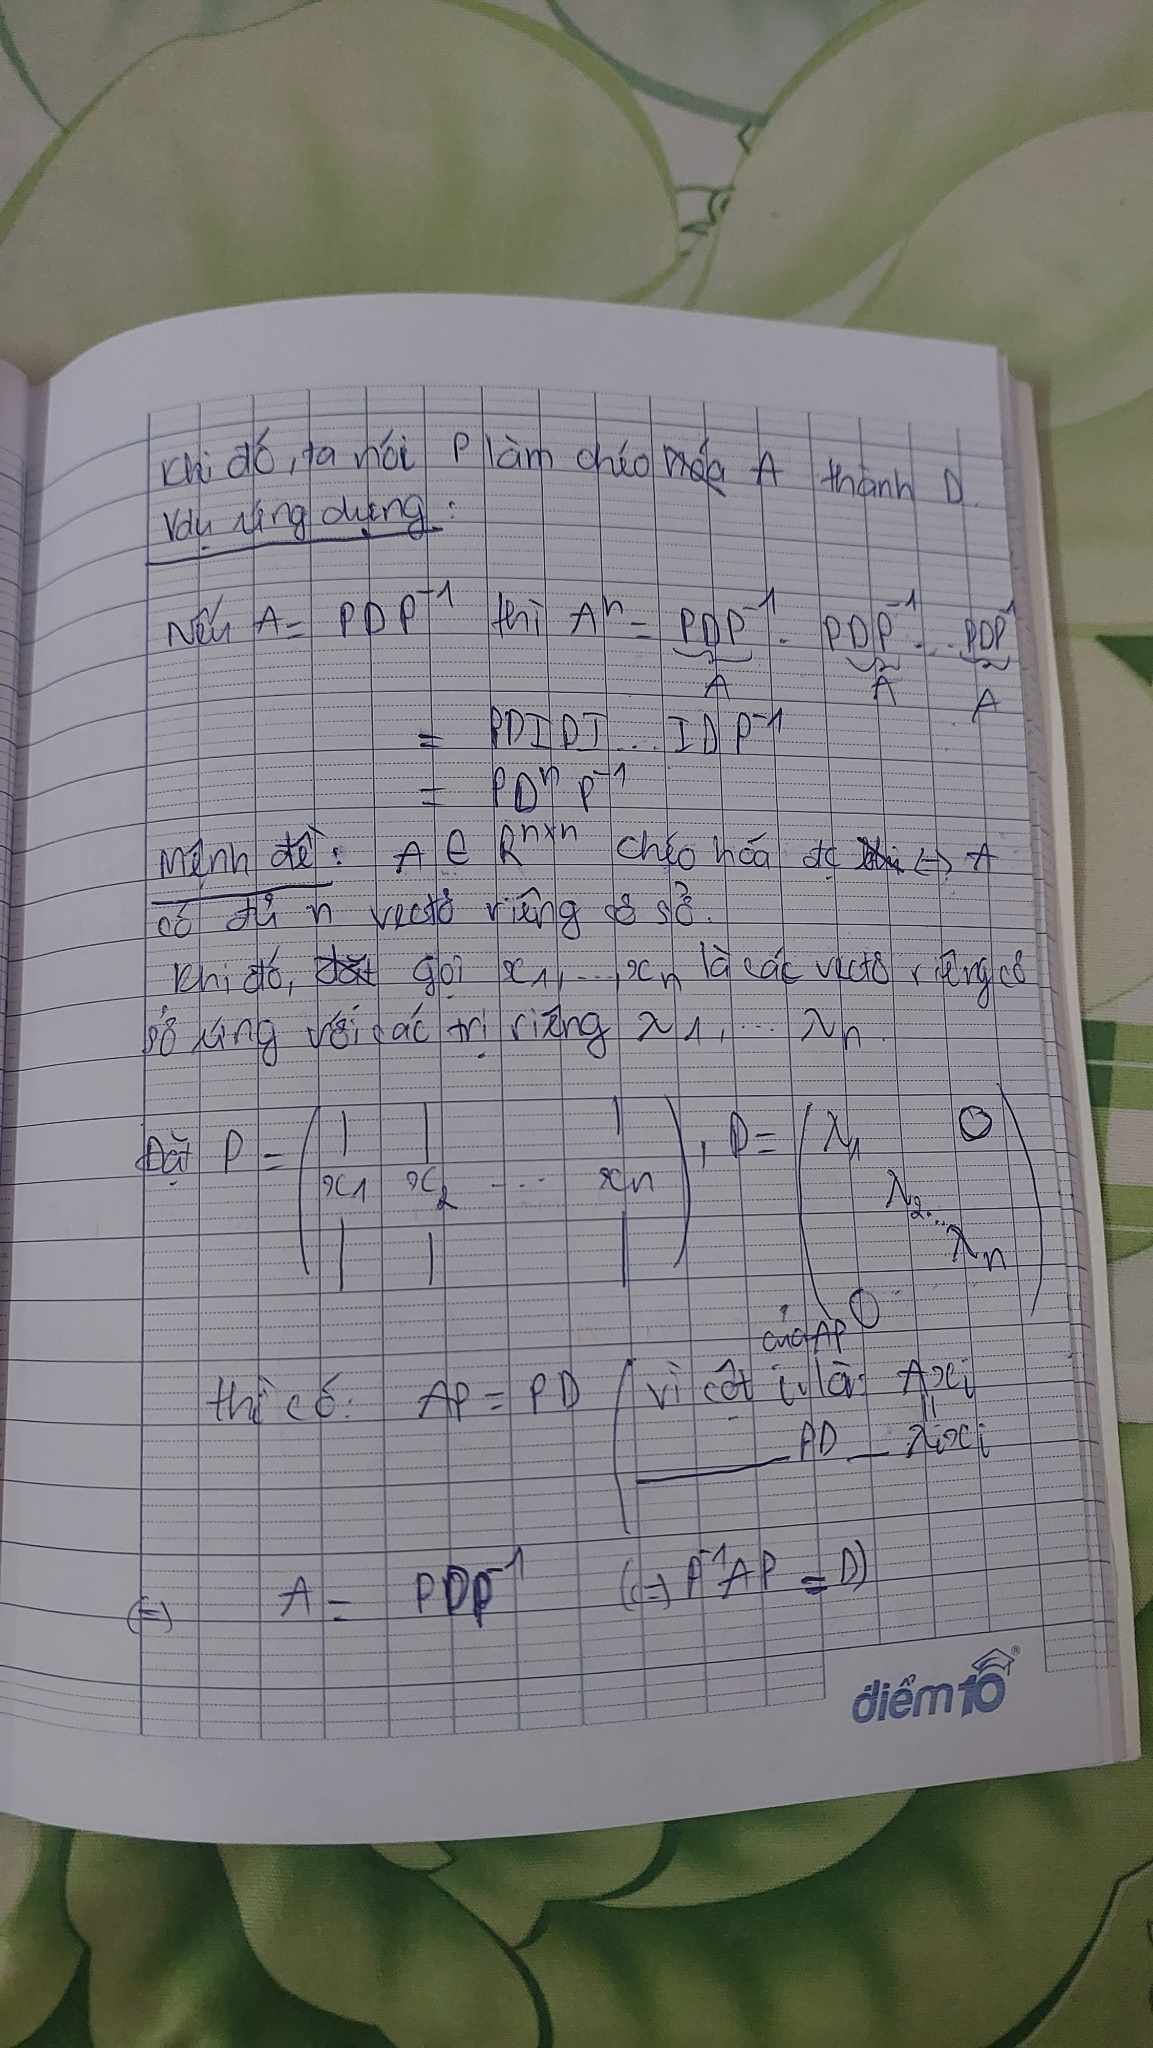 Khi đó, ta nói P làm chéo hóa A thành D.
Vdụ ứng dụng:
Nếu A = PDP⁻¹ thì Aⁿ = PDP⁻¹ . PDP⁻¹ ... PDP⁻¹
A A A
= PDIDI ... IDP⁻¹
= PDⁿP⁻¹
Mệnh đề: A ∈ Rⁿˣⁿ chéo hóa đc ⇔ A
có đủ n vectơ riêng cơ sở.
Khi đó, gọi x₁, ..., xₙ là các vectơ riêng cơ
sở ứng với các trị riêng λ₁, ... λₙ.
Đặt P = ( | | | ), D = ( λ₁ 0
x₁ x₂ ... xₙ λ₂...
| | | λₙ )
0
của AP
thì có: AP = PD ( vì cột i là Axᵢ
||
PD λᵢxᵢ
(=) A = PDP⁻¹ ((=) P⁻¹AP = D)
điểm10®